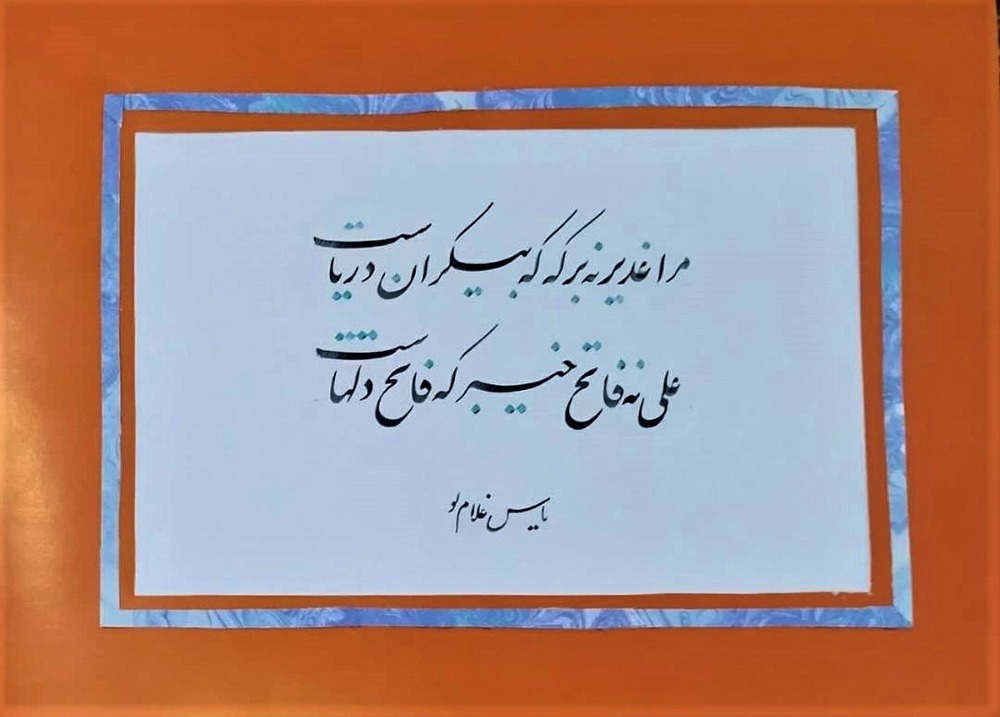 مرا غدیر نه برکه که بیکران دریاست
علی نه فاتح خیبر که فاتح دلهاست
یاس غلام لو